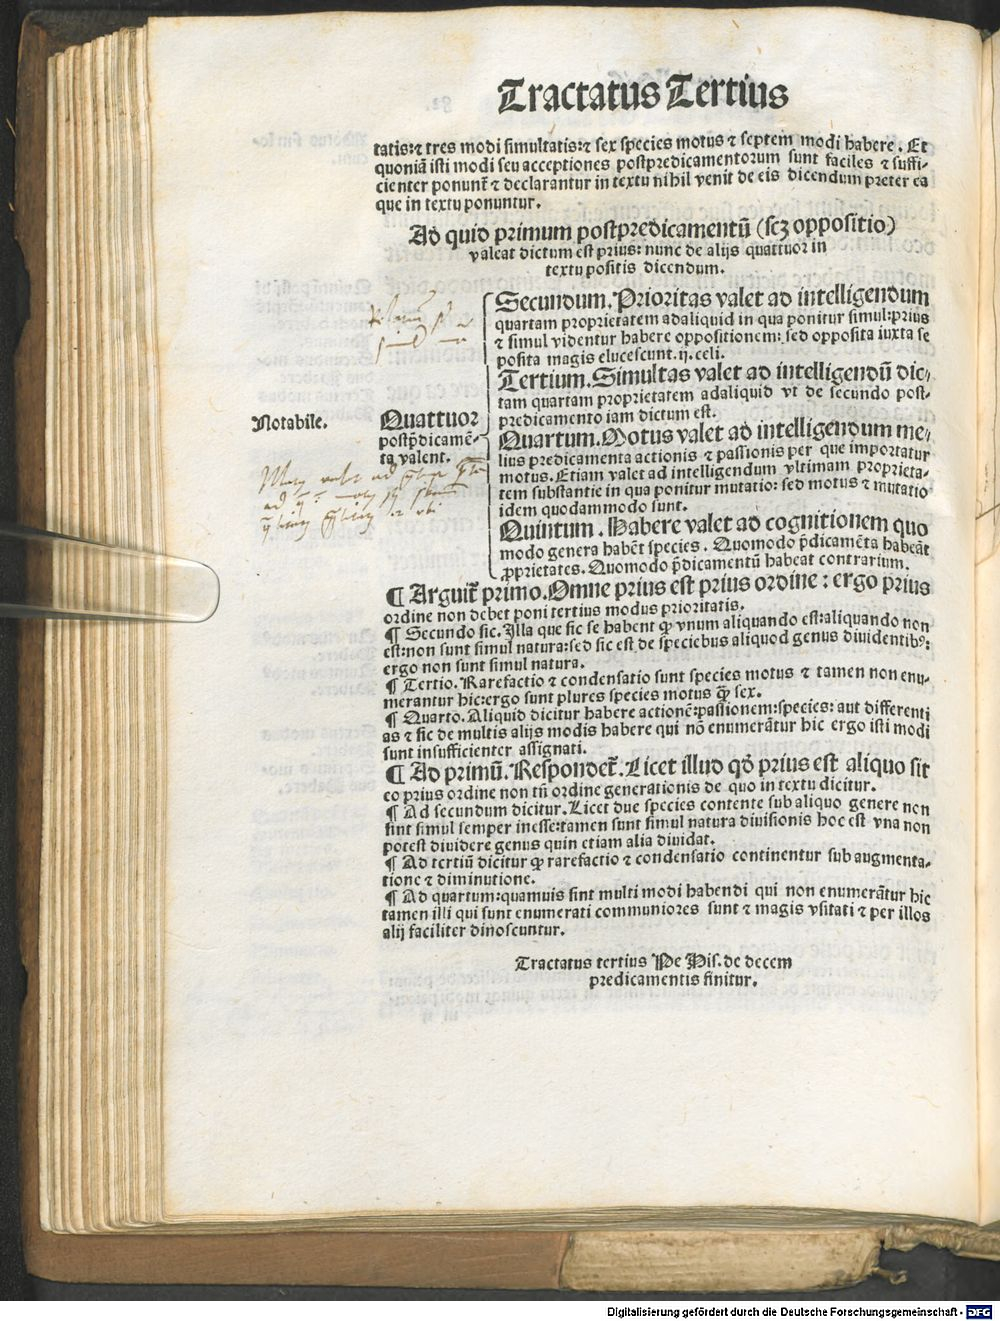 Tractatus Tertius
tatis:⁊ tres modi simultatis:⁊ sex species motus ⁊ septem modi habere. Et
quoniā isti modi seu acceptiones postpredicamentorum sunt faciles ⁊ suffi-
cienter ponunt̄ ⁊ declarantur in textu nihil venit de eis dicendum preter ea
que in textu ponuntur.
Ad quid primum postpredicamentū (scꝫ oppositio)
valeat dictum est prius: nunc de alijs quattuor in
textu positis dicendum.
Notabile.
Quattuor
postp̄dicamē-
ta valent.
Secundum. Prioritas valet ad intelligendum
quartam proprietatem adaliquid in qua ponitur simul:prius
⁊ simul videntur habere oppositionem: sed opposita iuxta se
posita magis elucescunt. ij. celi.
Tertium. Simultas valet ad intelligendū dic-
tam quartam proprietatem adaliquid vt de secundo post-
predicamento iam dictum est.
Quartum. Motus valet ad intelligendum me-
lius predicamenta actionis ⁊ passionis per que importatur
motus. Etiam valet ad intelligendum vltimam proprieta-
tem substantie in qua ponitur mutatio: sed motus ⁊ mutatio
idem quodammodo sunt.
Quintum. Habere valet ad cognitionem quo
modo genera habēt species. Quomodo p̄dicamēta habeāt
ꝓprietates. Quomodo p̄dicamentū habeat contrarium.
¶ Arguit̄ primo. Omne prius est prius ordine: ergo prius
ordine non debet poni tertius modus prioritatis.
¶ Secundo sic. Illa que sic se habent ꝙ vnum aliquando est:aliquando non
est:non sunt simul natura:sed sic est de speciebus aliquod genus diuidentibꝰ:
ergo non sunt simul natura.
¶ Tertio. Rarefactio ⁊ condensatio sunt species motus ⁊ tamen non enu-
merantur hic:ergo sunt plures species motus ꝙ̄ sex.
¶ Quarto. Aliquid dicitur habere actionē:passionem:species: aut differenti
as ⁊ sic de multis alijs modis habere qui nō enumerātur hic ergo isti modi
sunt insufficienter assignati.
¶ Ad primū. Respondet̄. Licet illud qd̄ prius est aliquo sit
eo prius ordine non tn̄ ordine generationis de quo in textu dicitur.
¶ Ad secundum dicitur. Licet due species contente sub aliquo genere non
sint simul semper inesse:tamen sunt simul natura diuisionis hoc est vna non
potest diuidere genus quin etiam alia diuidat.
¶ Ad tertiū dicitur ꝙ rarefactio ⁊ condensatio continentur sub augmenta-
tione ⁊ diminutione.
¶ Ad quartum:quamuis sint multi modi habendi qui non enumerātur hic
tamen illi qui sunt enumerati communiores sunt ⁊ magis vsitati ⁊ per illos
alij faciliter dinoscuntur.
Tractatus tertius Pe His. de decem
predicamentis finitur.
Digitalisierung gefördert durch die Deutsche Forschungsgemeinschaft - DFG